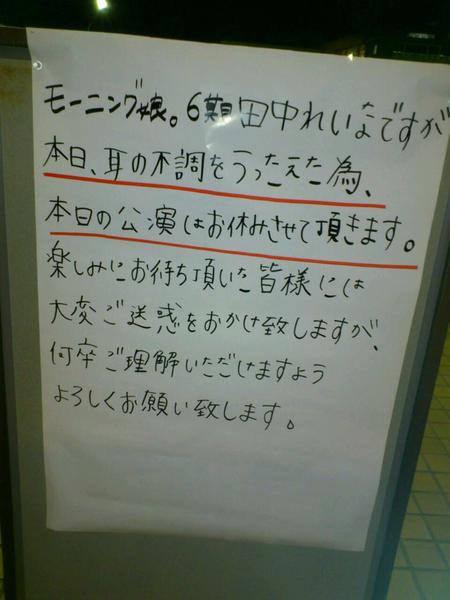 モーニング娘。6期田中れいなですが
本日、耳の不調をうったえた為、
本日の公演はお休みさせて頂きます。
楽しみにお待ち頂いた皆様には
大変ご送惑をおかけ致しますが、
何卒ご理解いただけますよう
よろしくお願い致します。